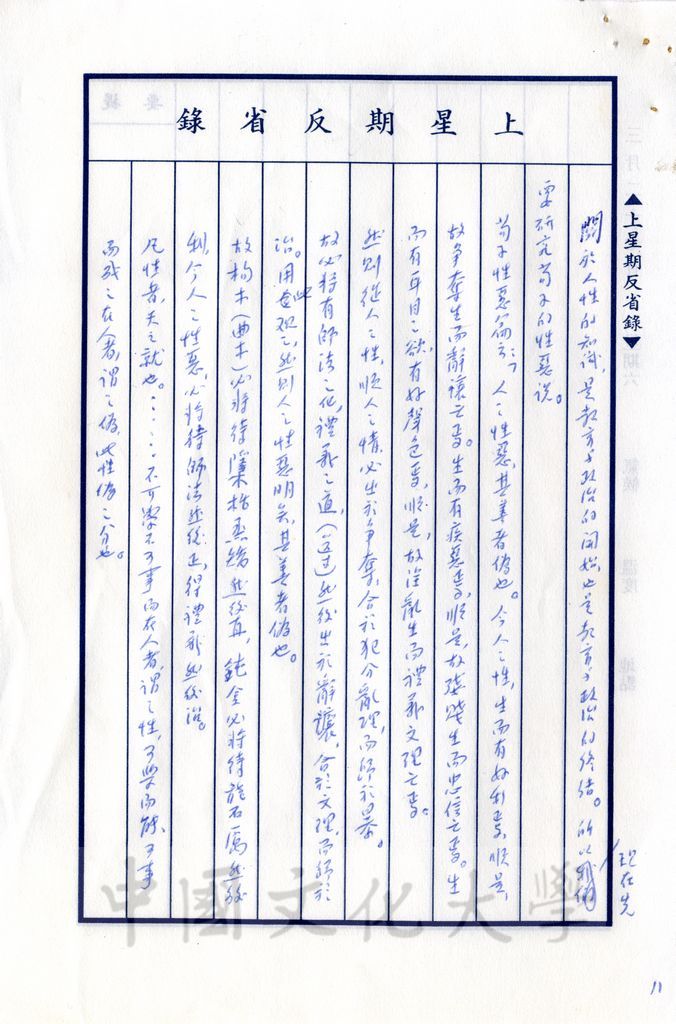 上星期反省錄
▲上星期反省錄▼
關於人性的知識,是教育與政治的開始,也是教育與政治的終結。所以我們
現在先
要研究荀子的性惡說。
荀子性惡篇云:「人之性惡,其善者偽也。今人之性,生而有好利焉,順是,
故爭奪生而辭讓亡焉。生而有疾惡焉,順是,故殘賊生而忠信亡焉。生
而有耳目之欲,有好聲色焉,順是,故淫亂生而禮義文理亡焉。
然則從人之性,順人之情,必出於爭奪,合於犯分亂理,而歸於暴。
故必將有師法之化,禮義之道,(道)然後出於辭讓,合於文理,而歸於
治。用此觀之,然則人之性惡明矣,其善者偽也。
故枸木(曲木)必將待檃栝烝矯然後直,鈍金必將待礱厲然後
利,今人之性惡,必將待師法然後正,得禮義然後治。
凡性者,天之就也。……不可學不可事而在人者,謂之性,可學而能,可事
而成之在人者,謂之偽,此性偽之分也。
中國文化大學
11